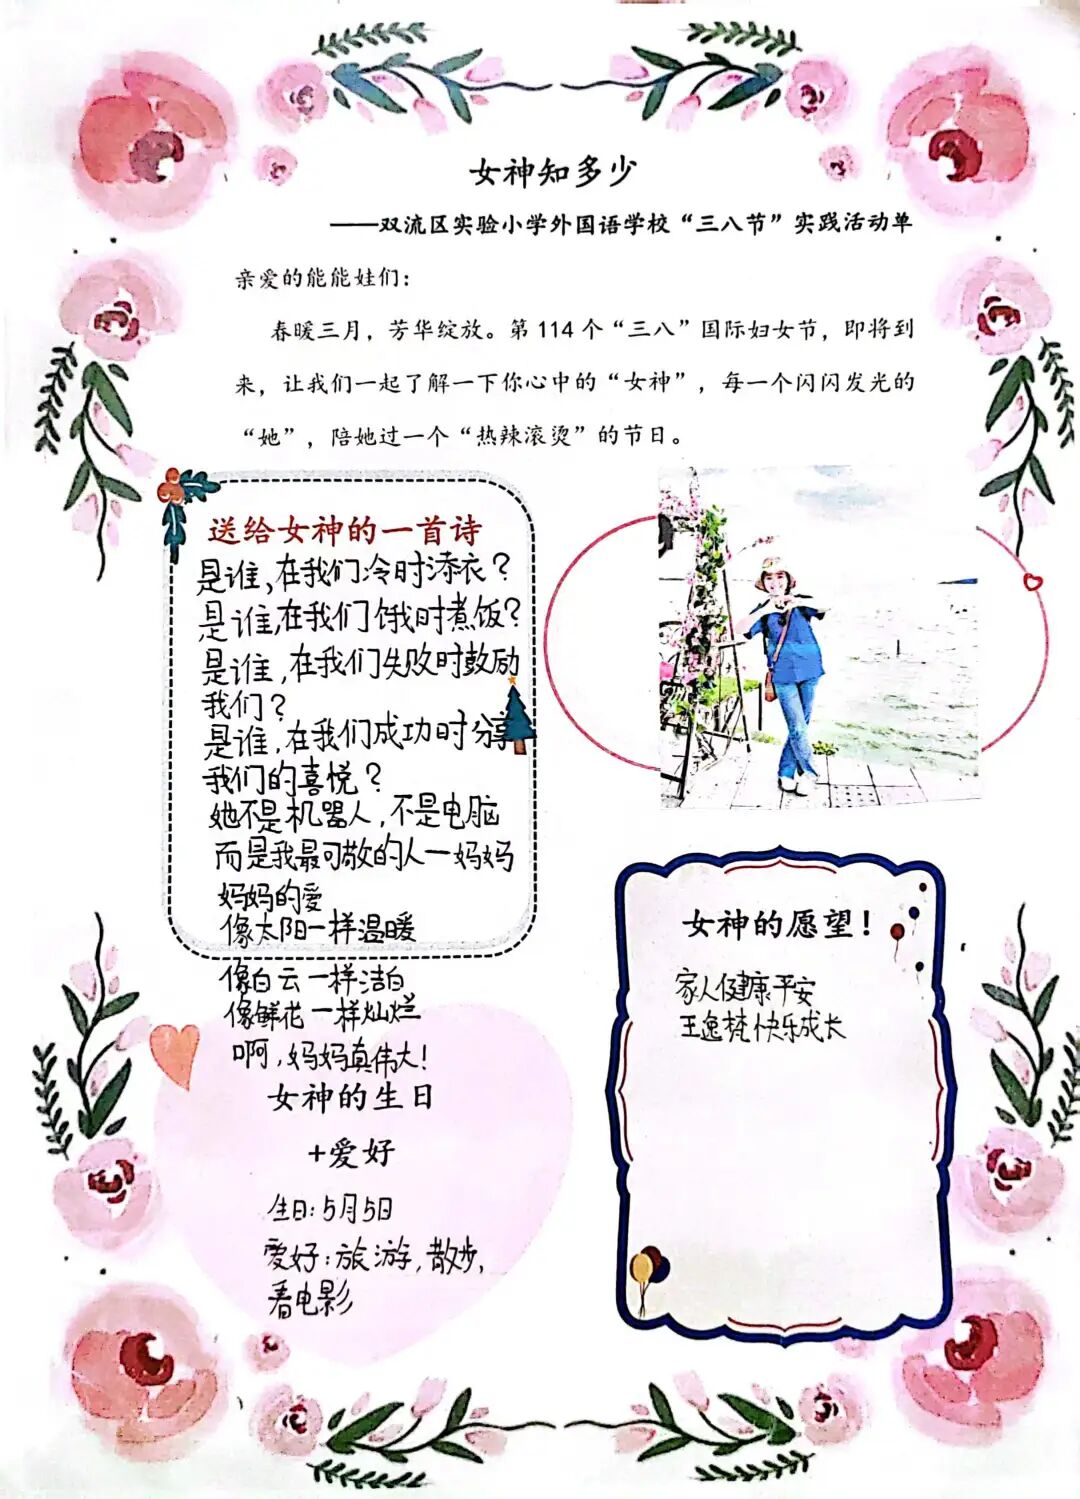 女神知多少
——双流区实验小学外国语学校“三八节”实践活动单
亲爱的能能娃们：
春暖三月，芳华绽放。第114个“三八”国际妇女节，即将到
来，让我们一起了解一下你心中的“女神”，每一个闪闪发光的
“她”，陪她过一个“热辣滚烫”的节日。
送给女神的一首诗
是谁,在我们冷时添衣?
是谁,在我们饿时煮饭?
是谁,在我们失败时鼓励
我们?
是谁,在我们成功时分享
我们的喜悦?
她不是机器人,不是电脑
而是我最可敬的人一妈妈
妈妈的爱
像太阳一样温暖
像白云一样洁白
像鲜花一样灿烂
啊,妈妈真伟大!
女神的生日
+爱好
生日:5月5日
爱好:旅游,散步,
看电影
女神的愿望！
家人健康平安
王逸梵快乐成长